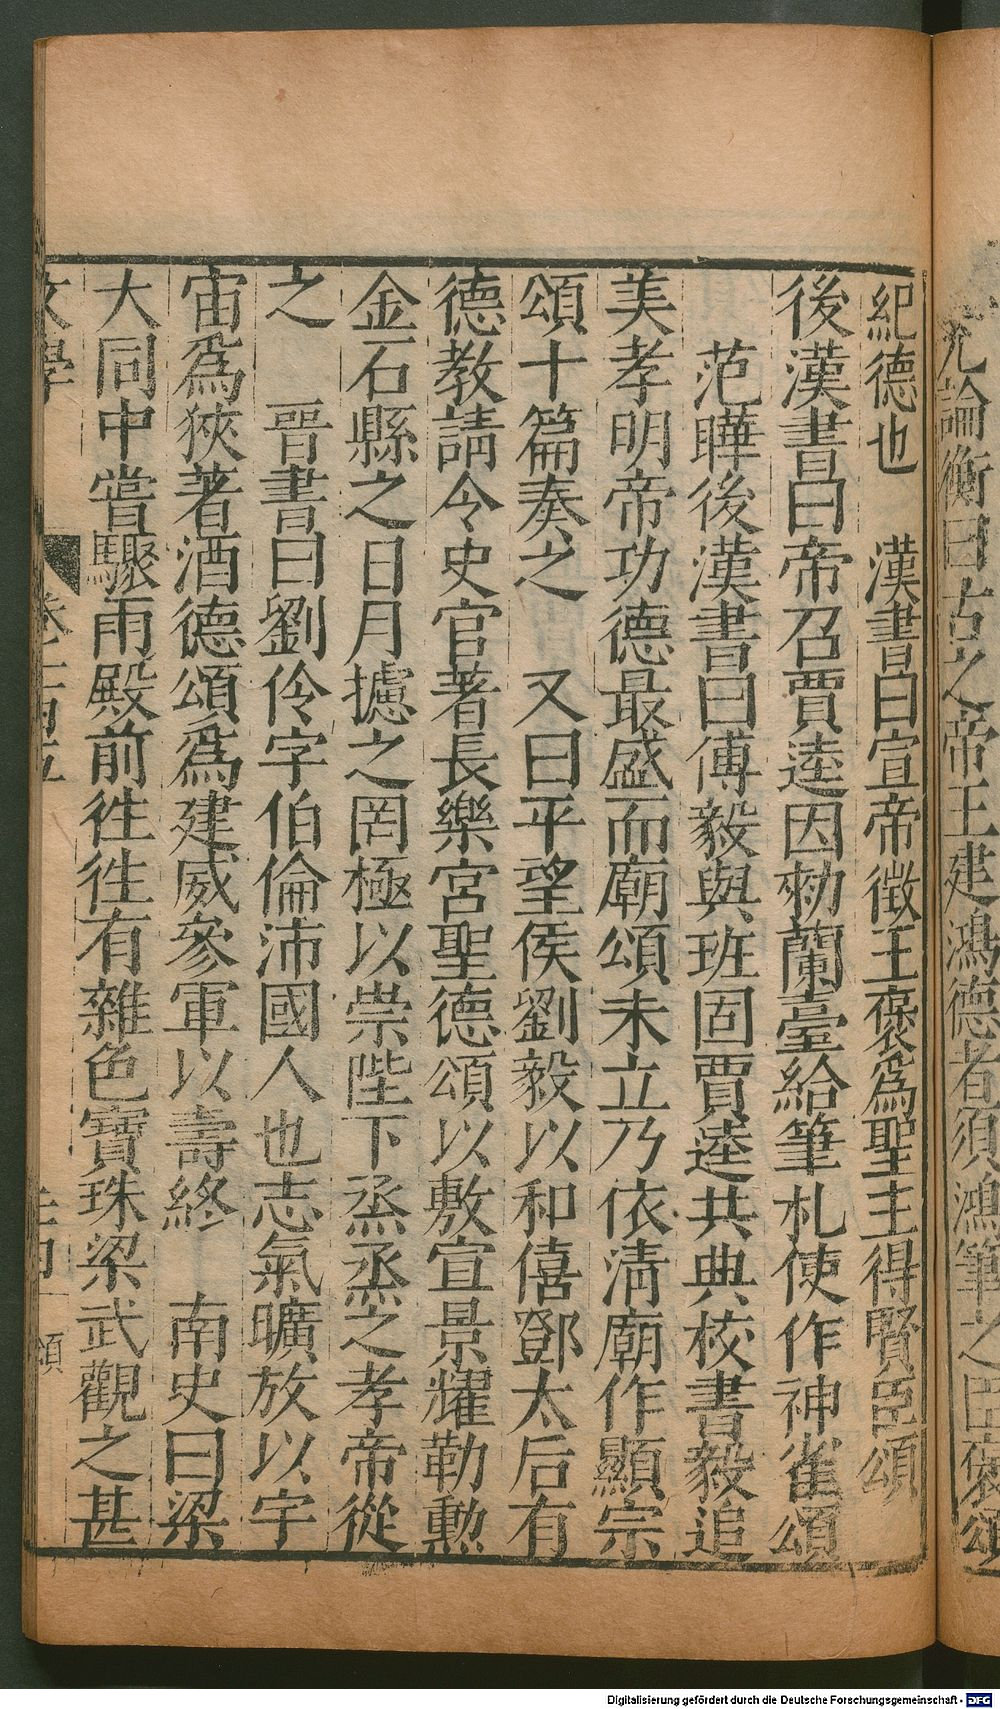 論衡曰古之帝王建鴻德者須鴻筆之臣褒頌
紀德也　漢書曰宣帝徵王褒爲聖主得賢臣頌
後漢書曰帝召賈逵因勑蘭臺給筆札使作神雀頌
范曄後漢書曰傅毅與班固賈逵共典校書毅追
美孝明帝功德最盛而廟頌未立乃依清廟作顯宗
頌十篇奏之　又曰平望侯劉毅以和僖鄧太后有
德教請令史官著長樂宮聖德頌以敷宣景耀勒勳
金石縣之日月攄之罔極以崇陛下烝烝之孝帝從
之　晉書曰劉伶字伯倫沛國人也志氣曠放以宇
宙爲狹著酒德頌爲建威參軍以壽終　南史曰梁
大同中嘗驟雨殿前徃徃有雜色寶珠梁武觀之甚
文學　頌
Digitalisierung gefördert durch die Deutsche Forschungsgemeinschaft - DFG